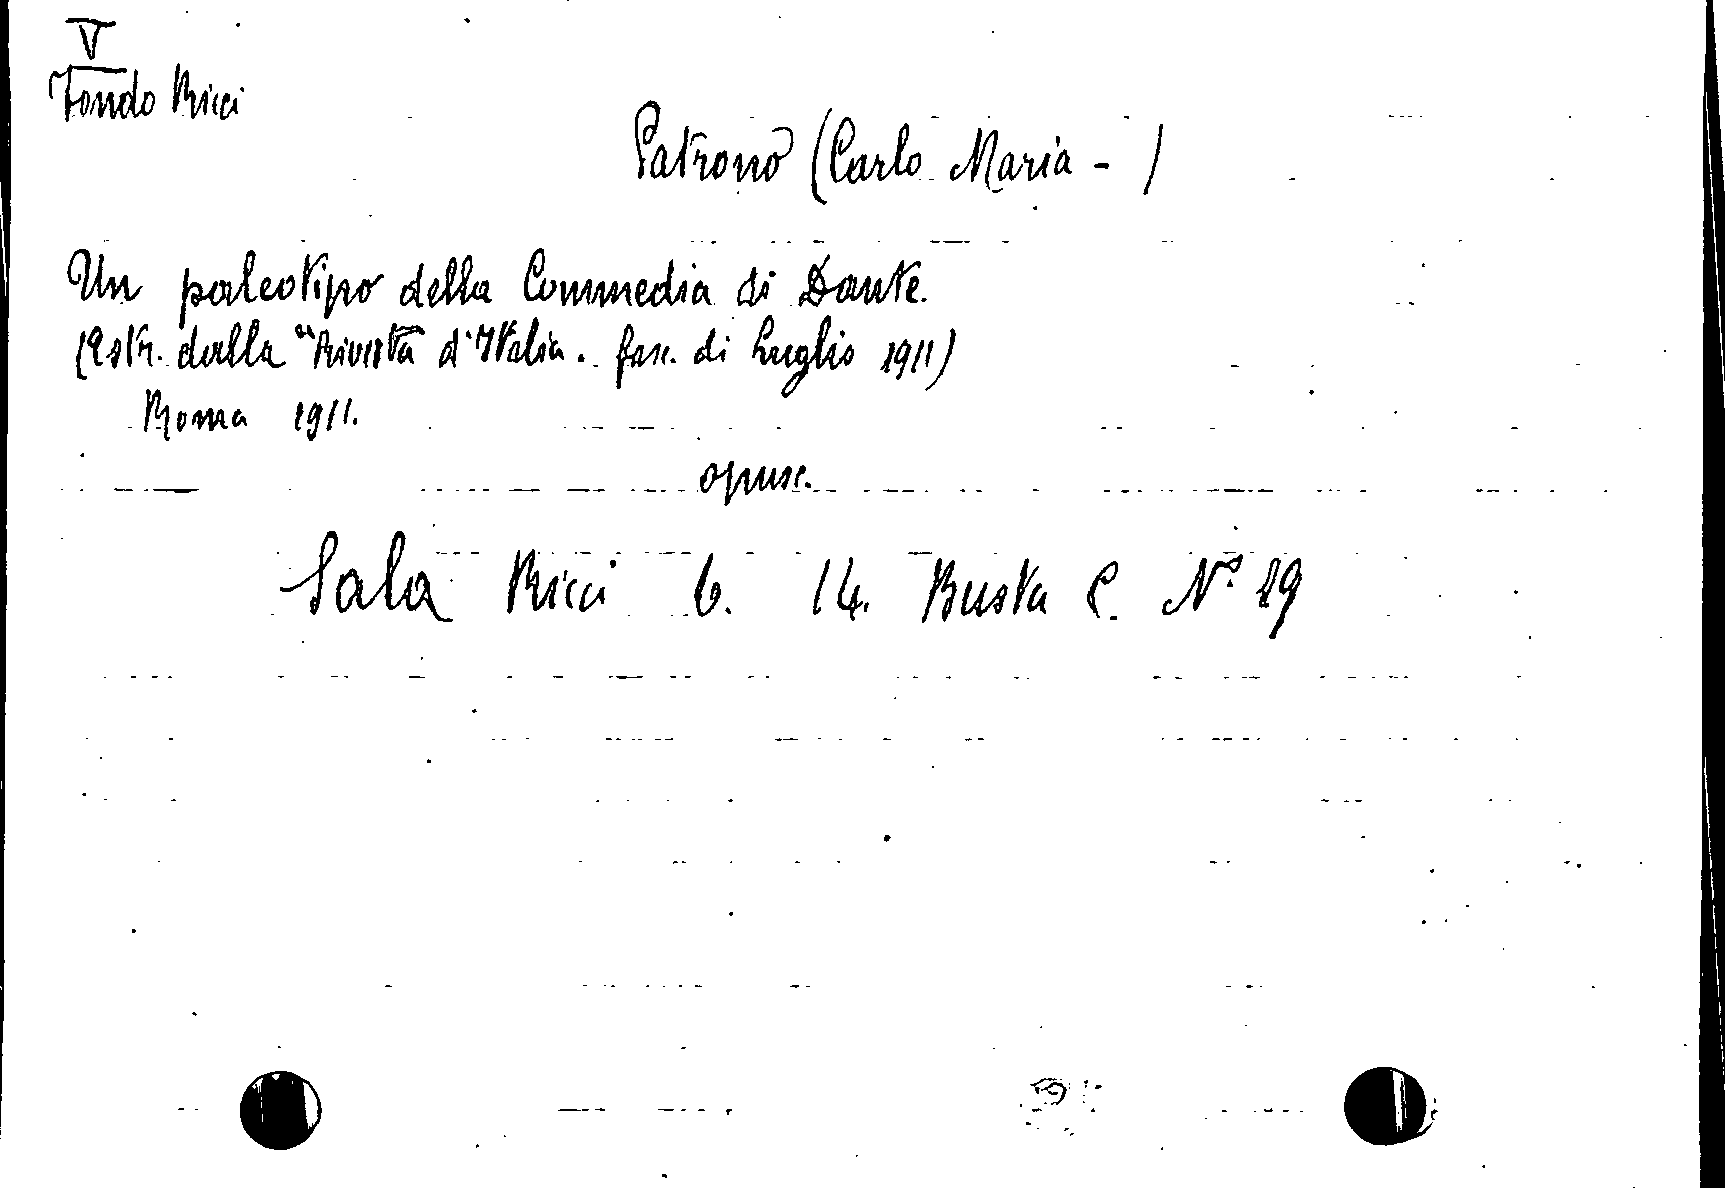 V
Fondo Ricci
Patrono (Carlo Maria - )
Un paleotipo della Commedia di Dante.
(Estr. dalla "Rivista d'Italia. fasc. di Luglio 1911)
Roma 1911.
opusc.
Sala Ricci 6. 14. Busta C. N° 29